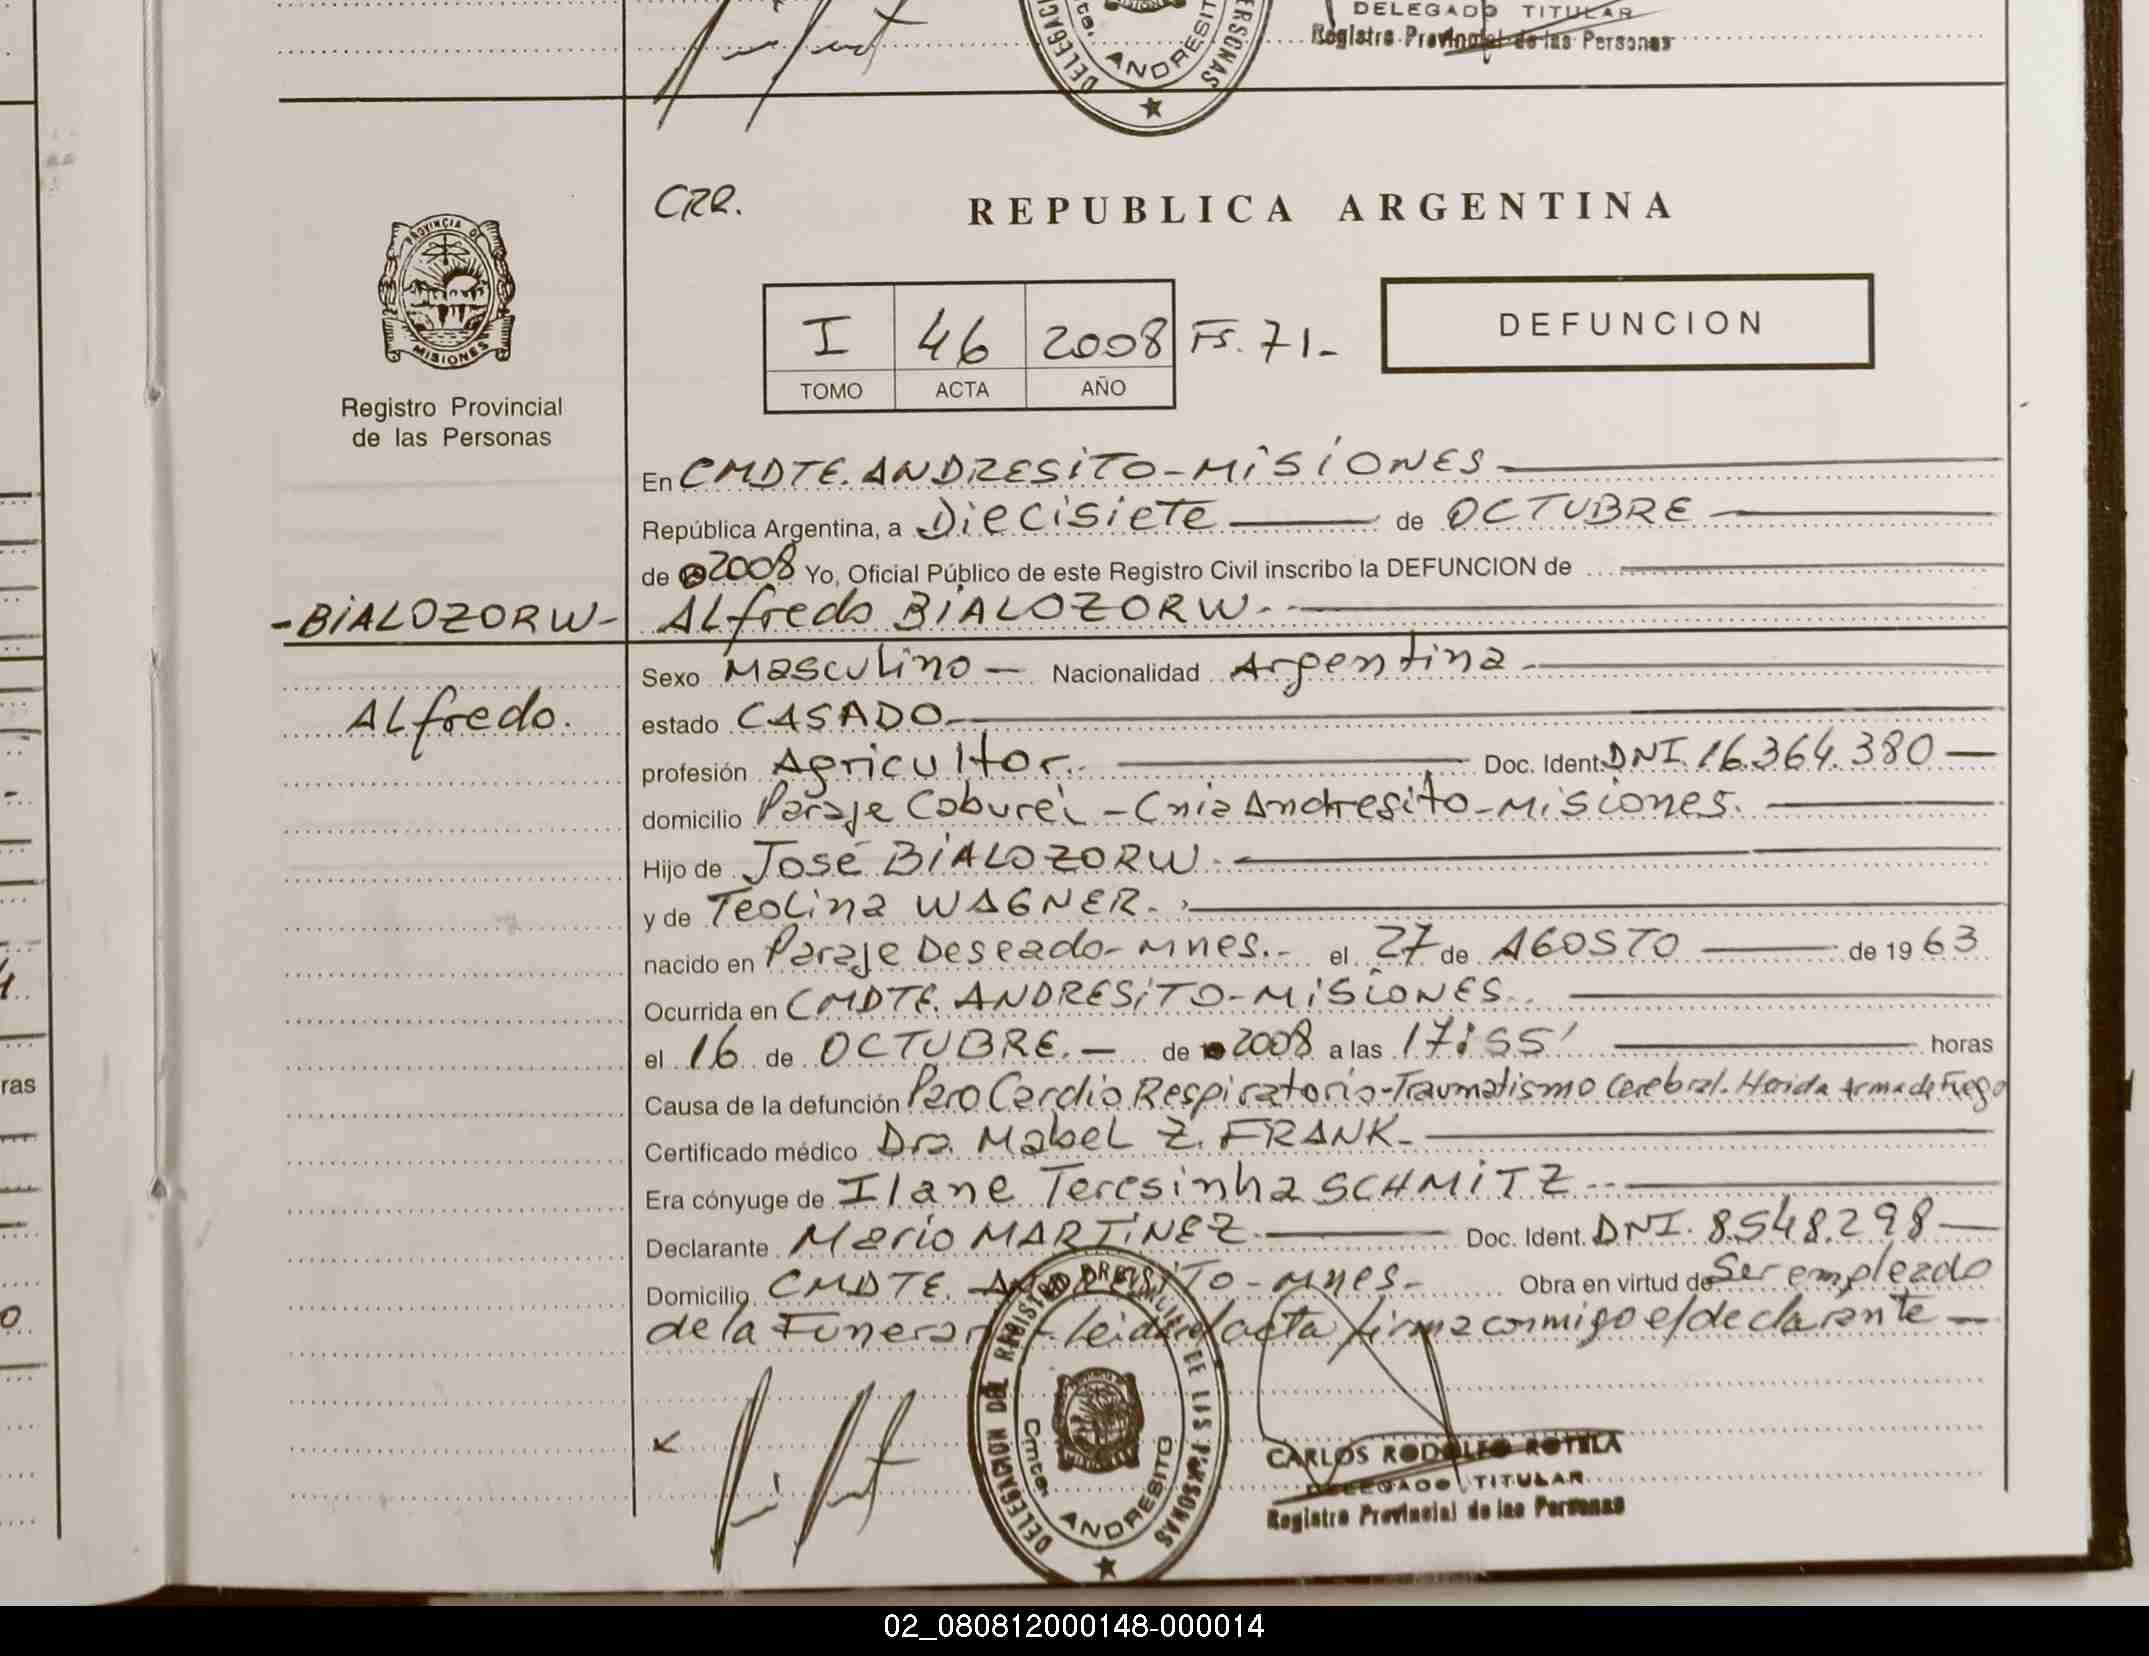 DELEGADO TITULAR
Registro Provincial de las Personas
DELEGAC
Cmte. ANDRESIT
ERSONAS
CRR.
REPUBLICA ARGENTINA
PROVINCIA DE
MISIONES
I 46 2008 Fs. 71-
TOMO ACTA AÑO
DEFUNCION
Registro Provincial
de las Personas
En CMDTE. ANDRESITO - MISIONES
República Argentina, a Diecisiete de OCTUBRE
de 2008 Yo, Oficial Público de este Registro Civil inscribo la DEFUNCION de
-BIALOZORW- ALfredo BIALOZORW.-
ALfredo.
Sexo Masculino — Nacionalidad Argentina.-
estado CASADO.-
profesión Agricultor. Doc. Ident. DNI. 16.364.380 —
domicilio Paraje Caburei - Cnia Andresito - Misiones.
Hijo de José BIALOZORW.-
y de TeoLina WAGNER.-
nacido en Paraje Deseado - mnes.- el 27 de AGOSTO de 1963
Ocurrida en CMDTE. ANDRESITO - MISIONES.
el 16 de OCTUBRE.- de 2008 a las 17:55' horas
Causa de la defunción Paro Cardio Respiratorio - Traumatismo Cerebral. Herida Arma de Fuego
Certificado médico Dra. MabeL Z. FRANK.-
Era cónyuge de Ilane Teresinha SCHMITZ.-
Declarante Mario MARTINEZ Doc. Ident. DNI. 8.548.298 —
Domicilio CMDTE. ANDRESITO - mnes.- Obra en virtud de Ser empleado
de la Funeraria - leida el acta firma conmigo el declarante —
DELEGACION DEL REGISTRO PROVINCIAL DE LAS PERSONAS
Cmte. ANDRESITO
CARLOS RODOLFO ROTELA
DELEGADO TITULAR
Registro Provincial de las Personas
ras
02_080812000148-000014